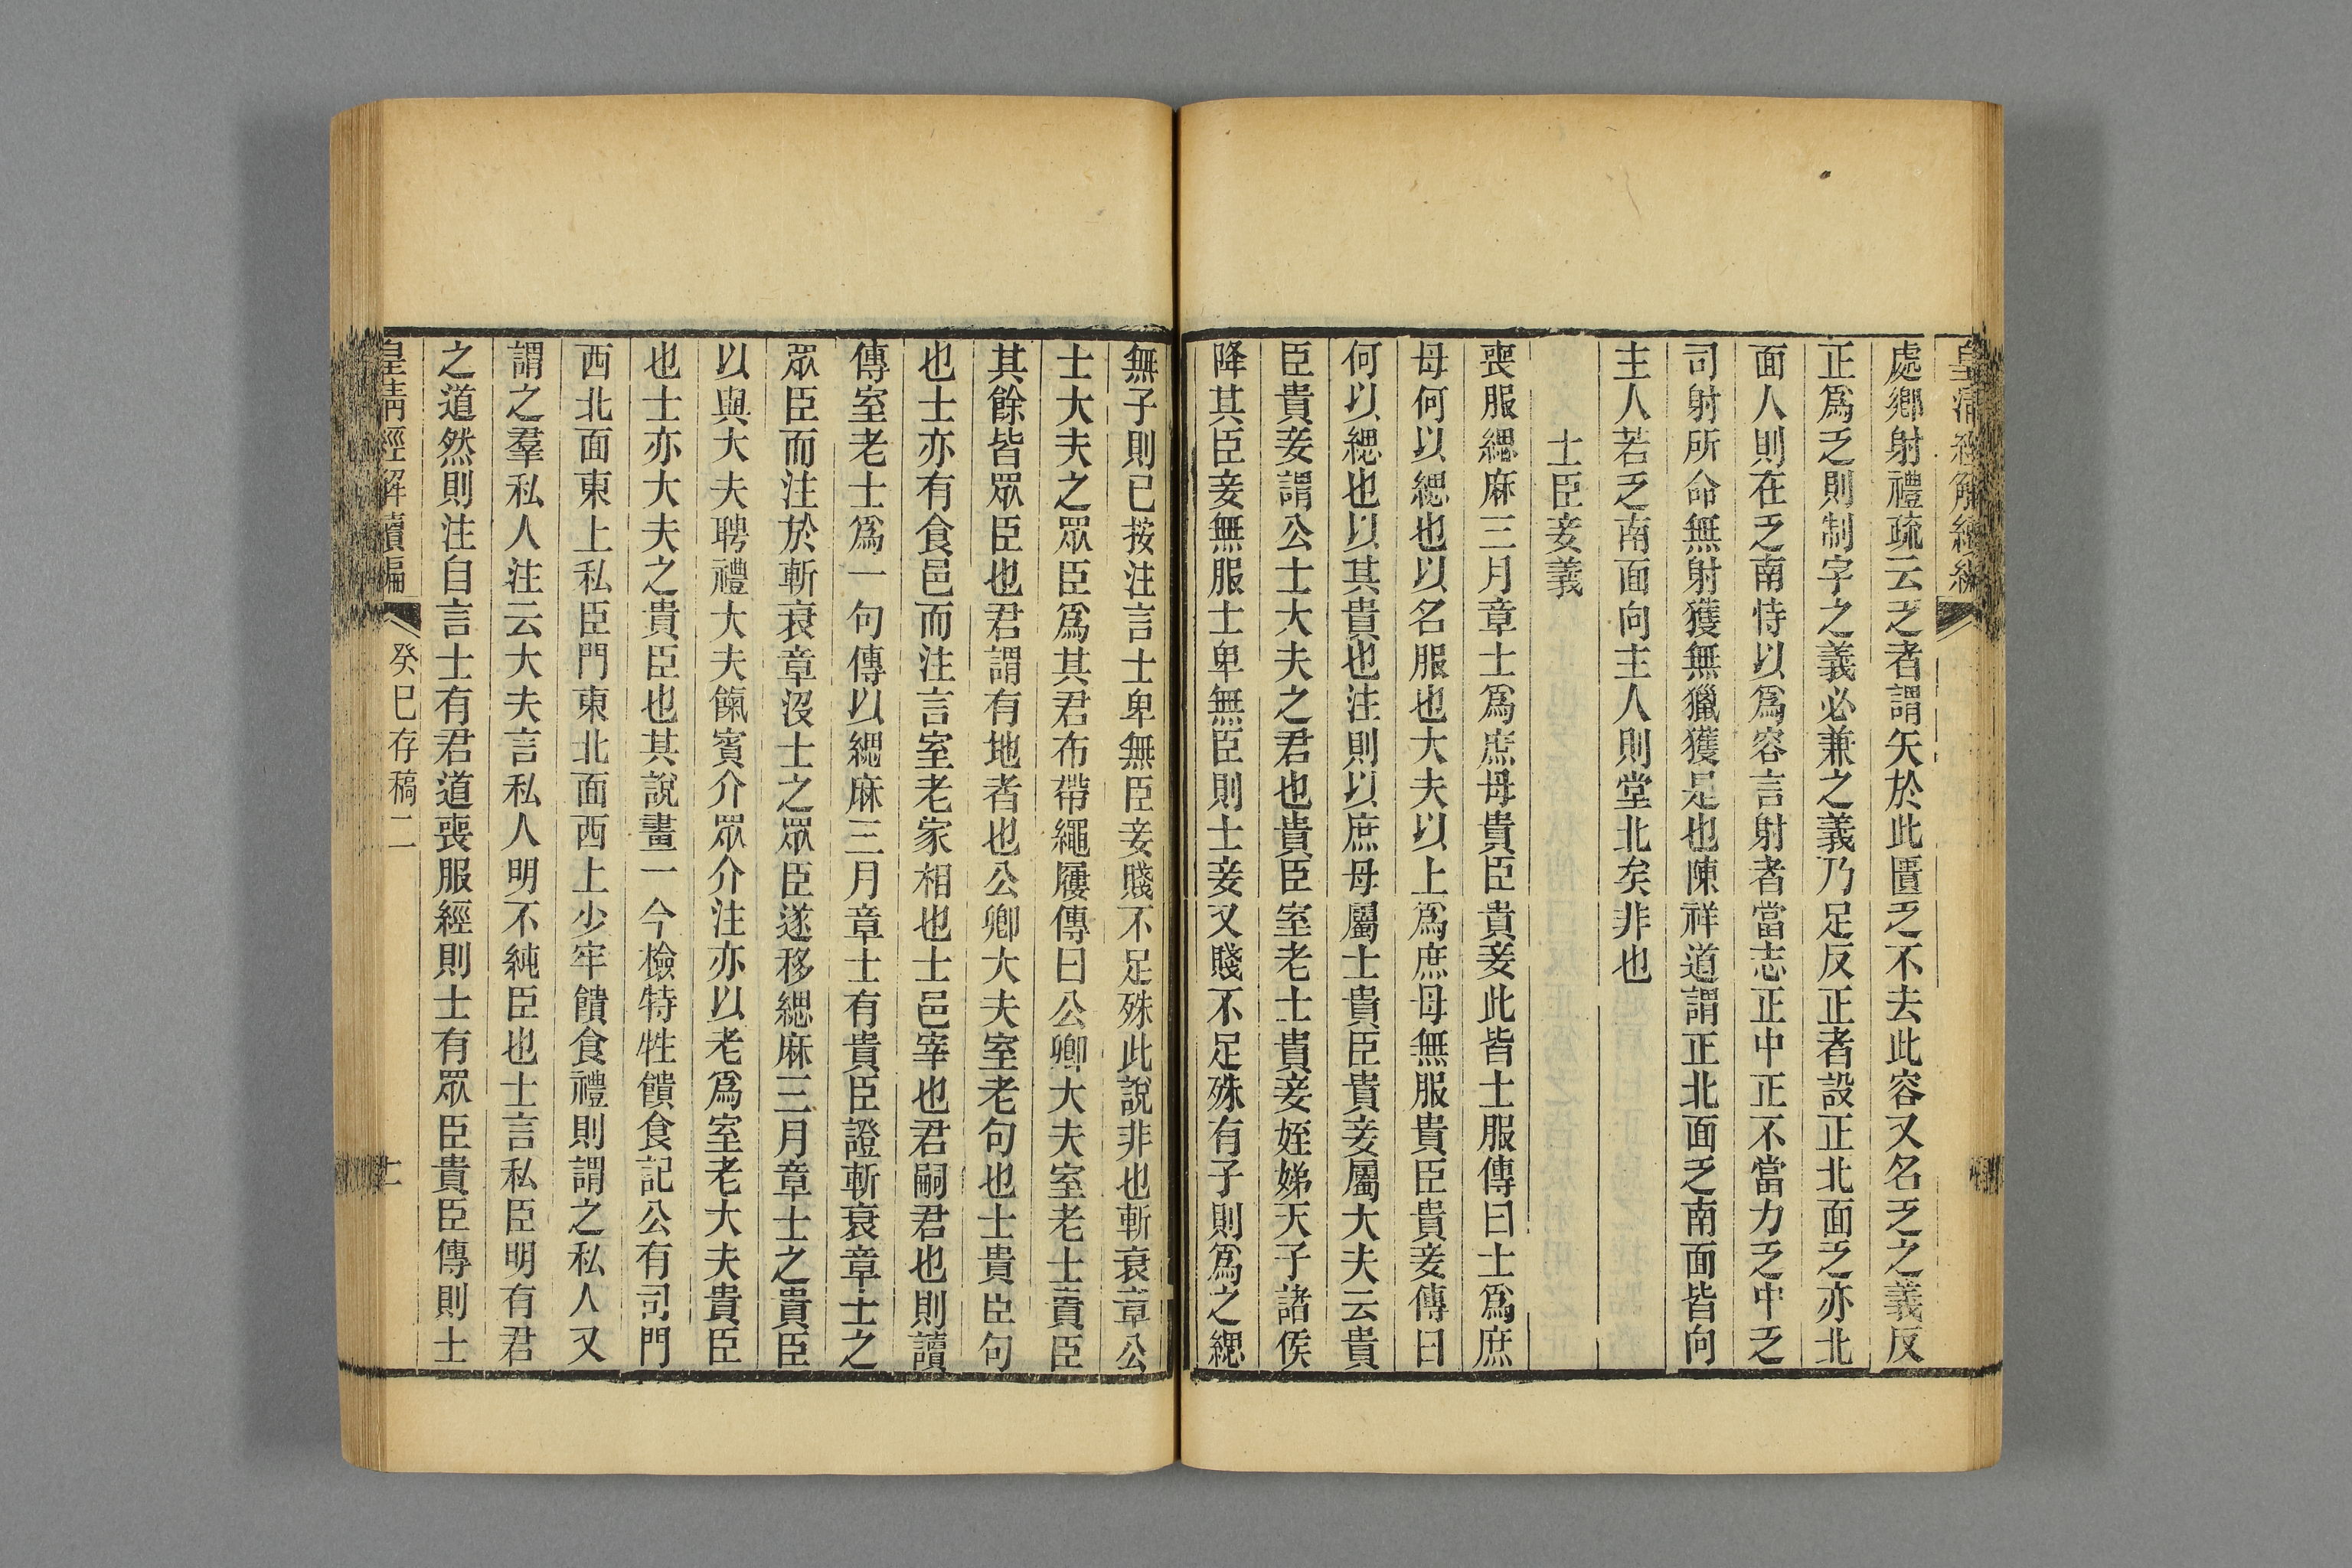 皇清經解續編
處鄉射禮疏云乏者謂矢於此匱乏不去此容又名乏之義反
正爲乏則制字之義必兼之義乃足反正者設正北面乏亦北
面人則在乏南恃以爲容言射者當志正中正不當力乏中乏
司射所命無射獲無獵獲是也陳祥道謂正北面乏南面皆向
主人若乏南面向主人則堂北矣非也
士臣妾義
喪服緦麻三月章士爲庶母貴臣貴妾此皆士服傳曰士爲庶
母何以緦也以名服也大夫以上爲庶母無服貴臣貴妾傳曰
何以緦也以其貴也注則以庶母屬士貴臣貴妾屬大夫云貴
臣貴妾謂公士大夫之君也貴臣室老士貴妾姪娣天子諸侯
降其臣妾無服士卑無臣則士妾又賤不足殊有子則爲之緦
無子則已按注言士卑無臣妾賤不足殊此說非也斬衰章公
士大夫之眾臣爲其君布帶繩屨傳曰公卿大夫室老士貴臣
其餘皆眾臣也君謂有地者也公卿大夫室老句也士貴臣句
也士亦有食邑而注言室老家相也士邑宰也君嗣君也則讀
傳室老士爲一句傳以緦麻三月章士有貴臣證斬衰章士之
眾臣而注於斬衰章沒士之眾臣遂移緦麻三月章士之貴臣
以與大夫聘禮大夫餼賓介眾介注亦以老爲室老大夫貴臣
也士亦大夫之貴臣也其說畫一今檢特牲饋食記公有司門
西北面東上私臣門東北面西上少牢饋食禮則謂之私人又
謂之羣私人注云大夫言私人明不純臣也士言私臣明有君
之道然則注自言士有君道喪服經則士有眾臣貴臣傳則士
皇清經解續編
癸巳存稿二